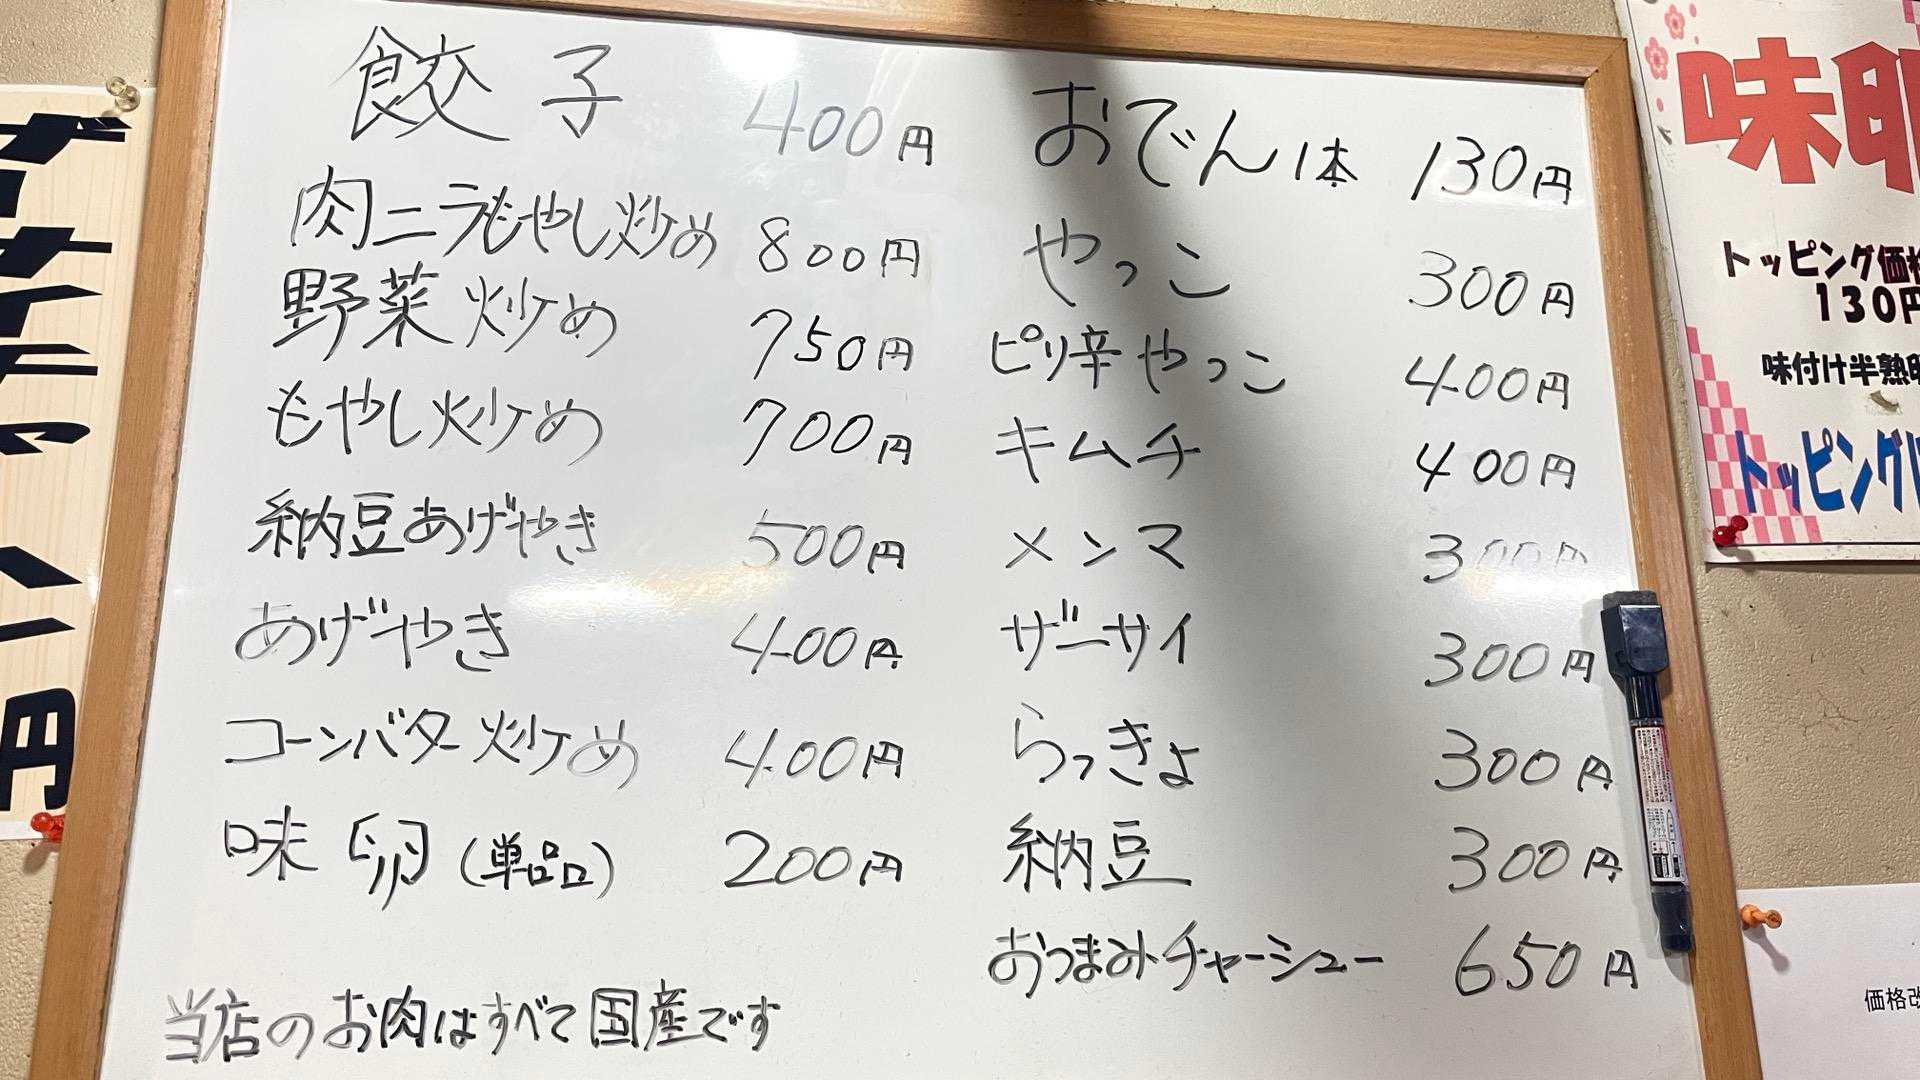 餃子 400円
肉ニラもやし炒め 800円
野菜炒め 750円
もやし炒め 700円
納豆あげやき 500円
あげやき 400円
コーンバター炒め 400円
味卵(単品) 200円
当店のお肉はすべて国産です
おでん1本 130円
やっこ 300円
ピリ辛やっこ 400円
キムチ 400円
メンマ 300円
ザーサイ 300円
らっきょ 300円
納豆 300円
おつまみチャーシュー 650円
味
トッピング価格
130円
味付け半熟
トッピング
価格改
円